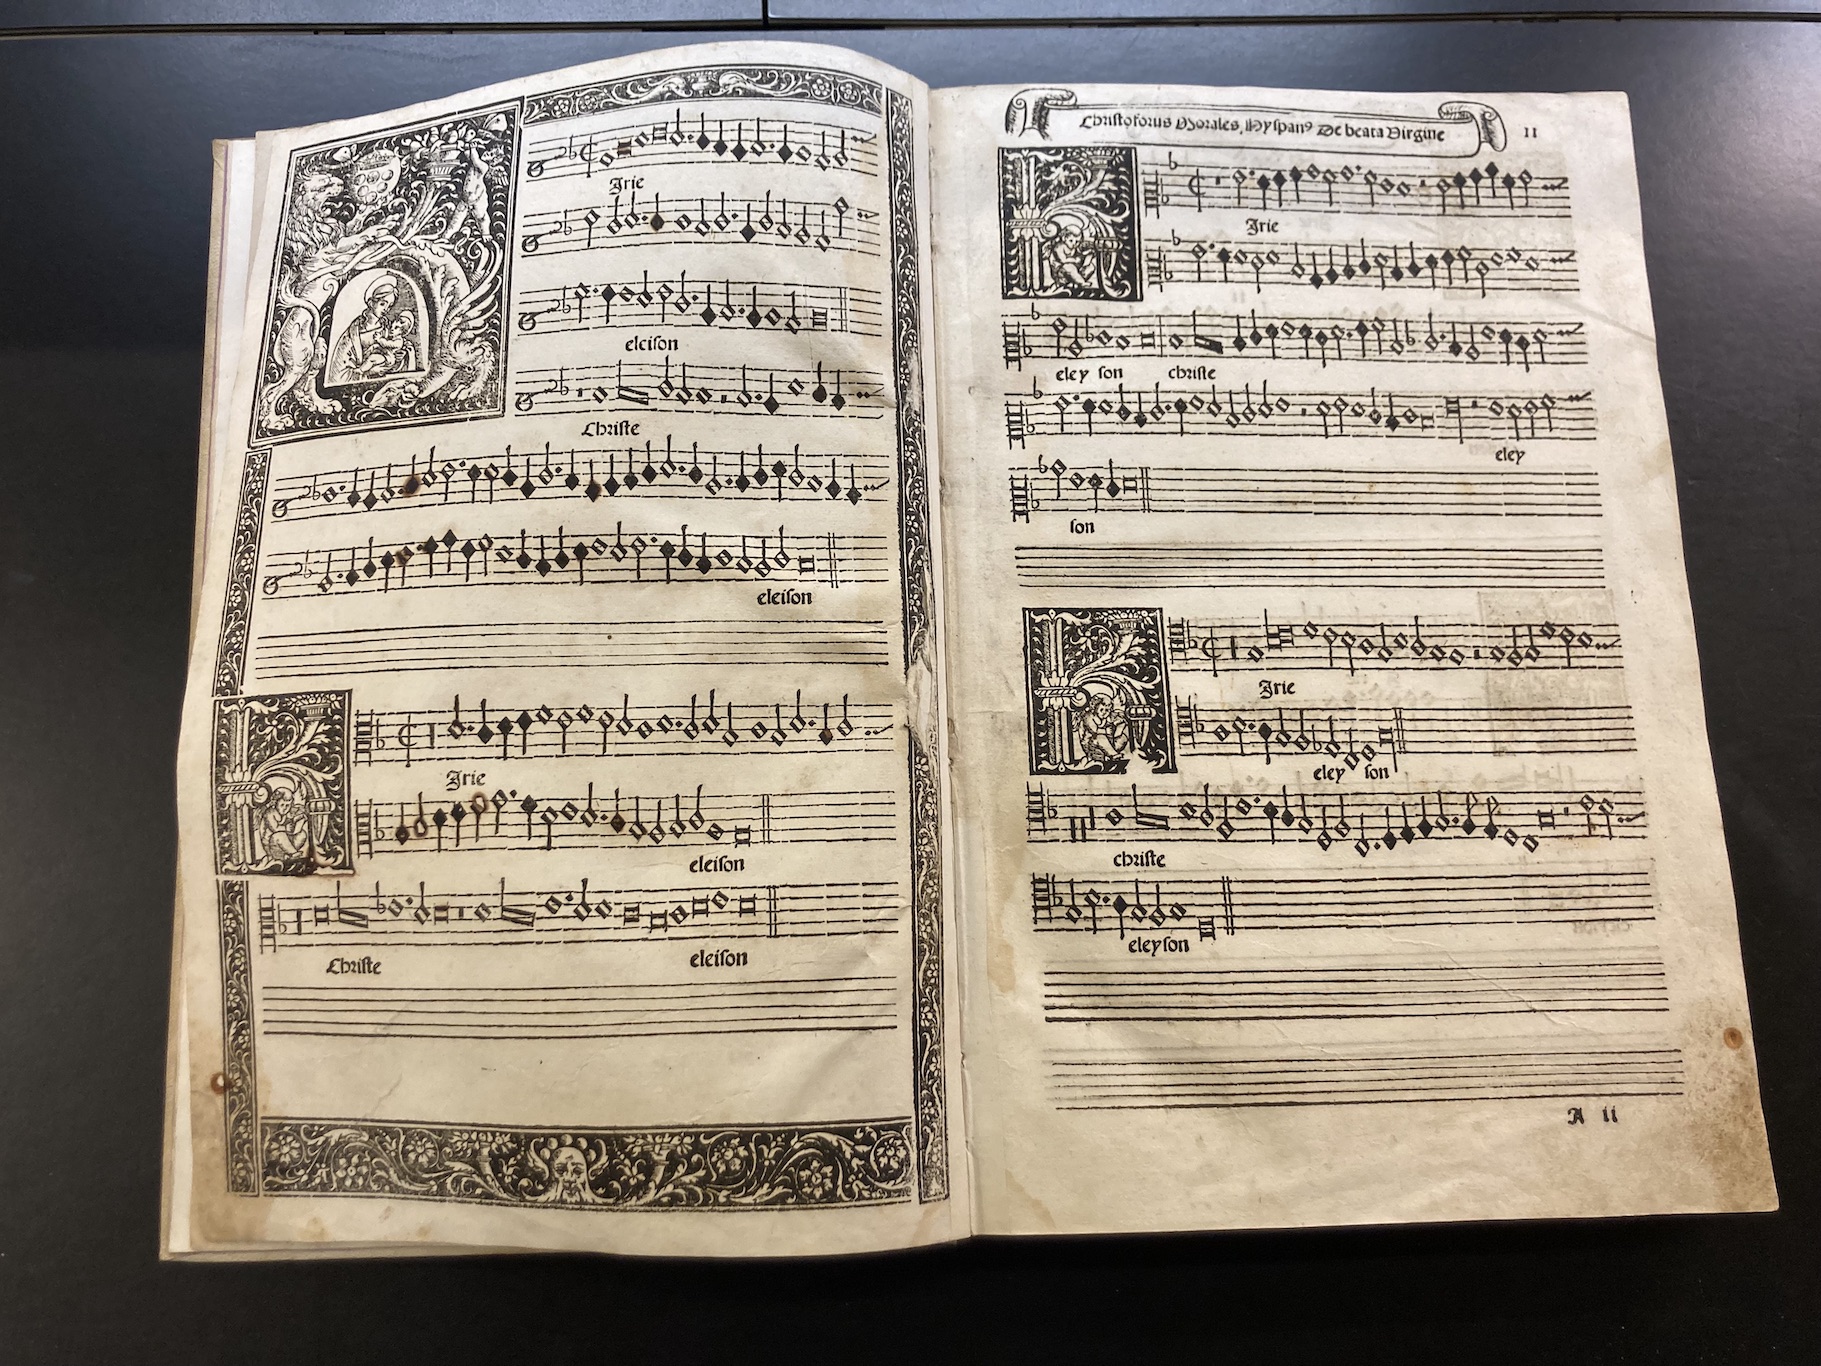 Jrie
eleison
Christe
eleison
Jrie
eleison
Christe eleison
Christoforus Morales, Hyspanꝰ De beata Virgine II
Jrie
eley son christe
eley
son
Jrie
eley son
christe
eleyson
A ii